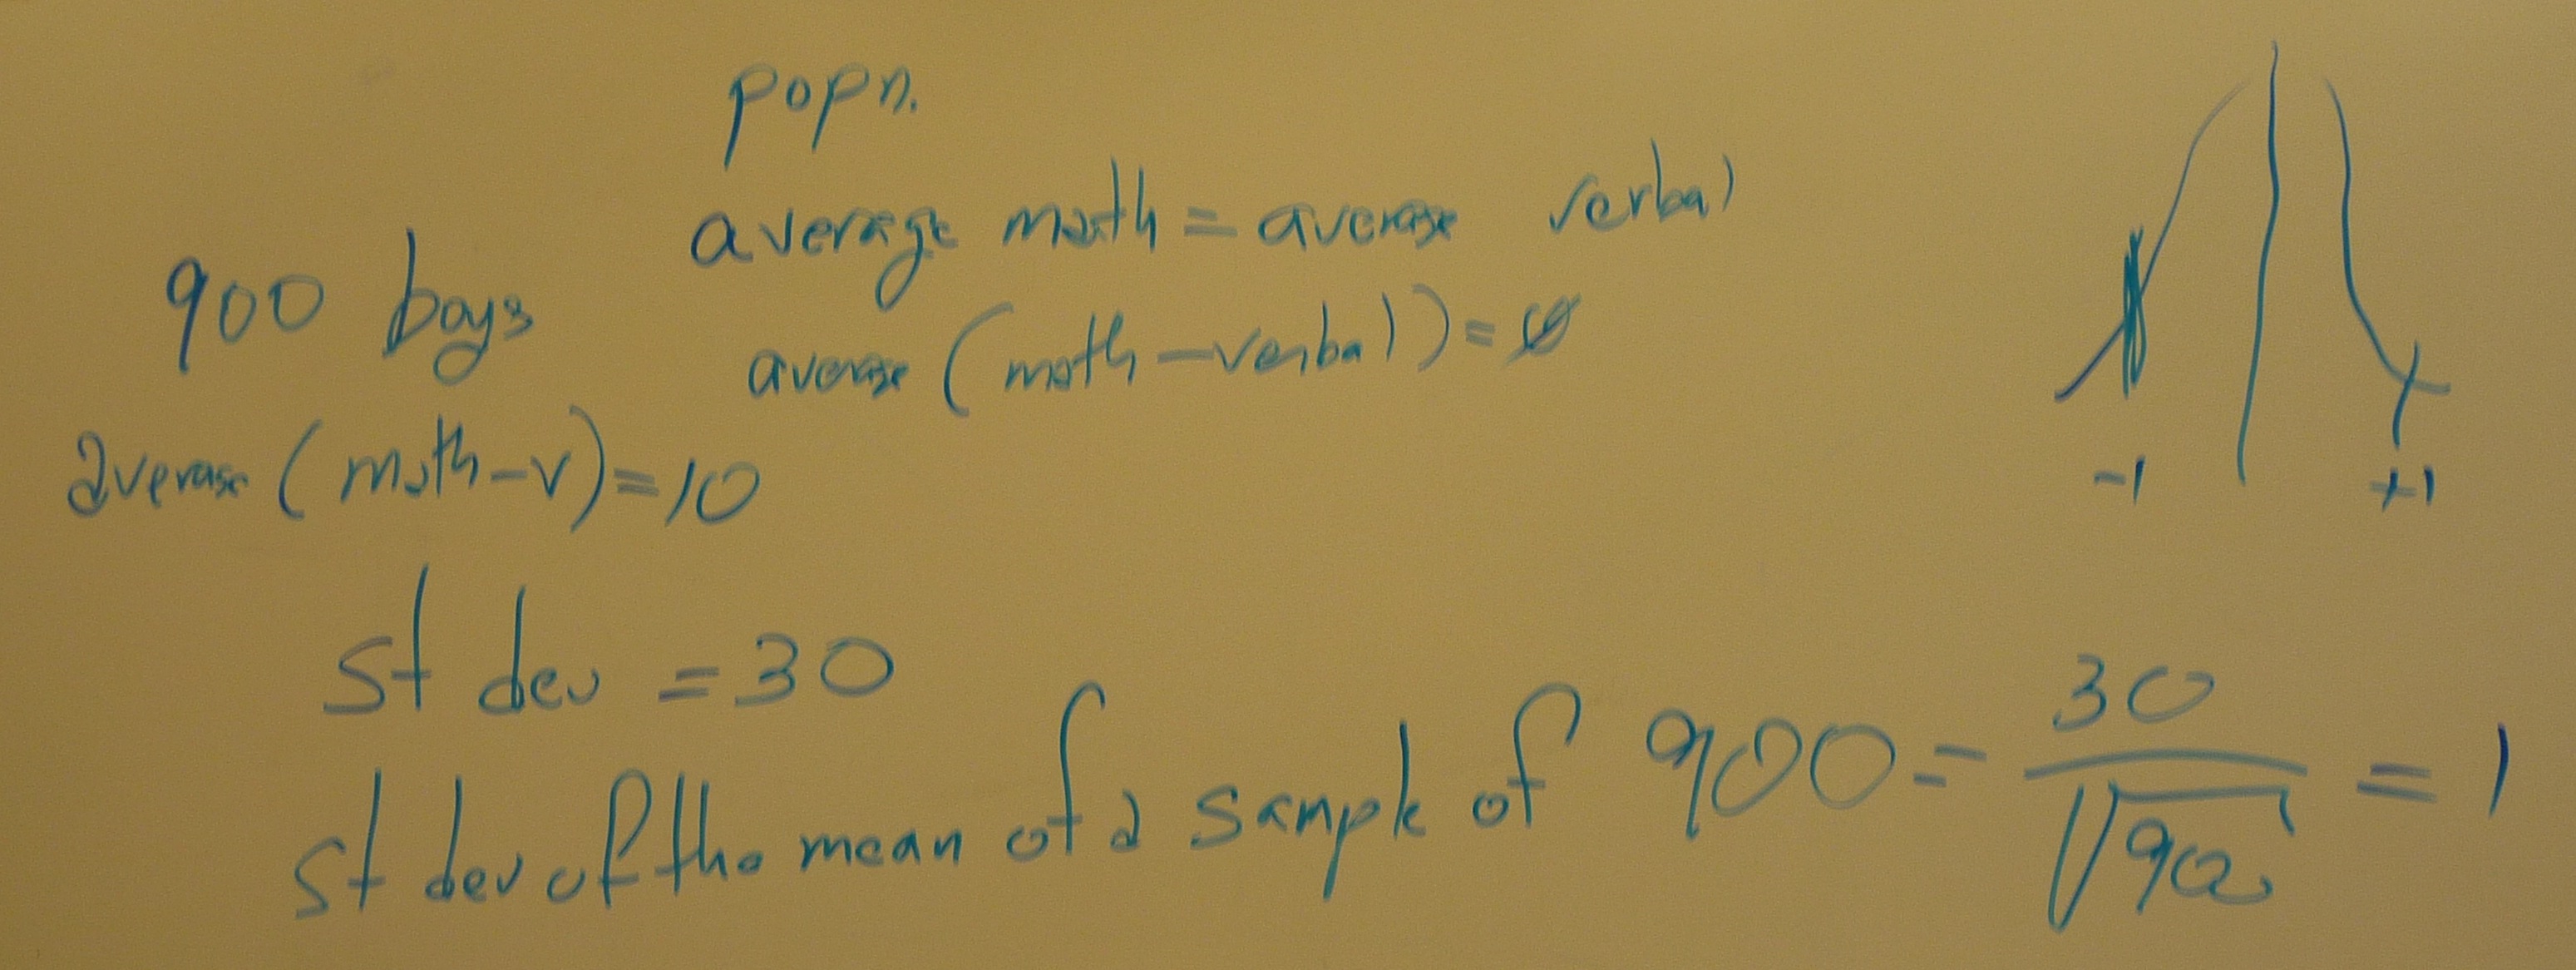 popn.
average math = average verbal
900 boys
average (math - verbal) = 0
average (math - v) = 10
-1
+1
st dev = 30
st dev of the mean of a sample of 900 = 30 / √900 = 1